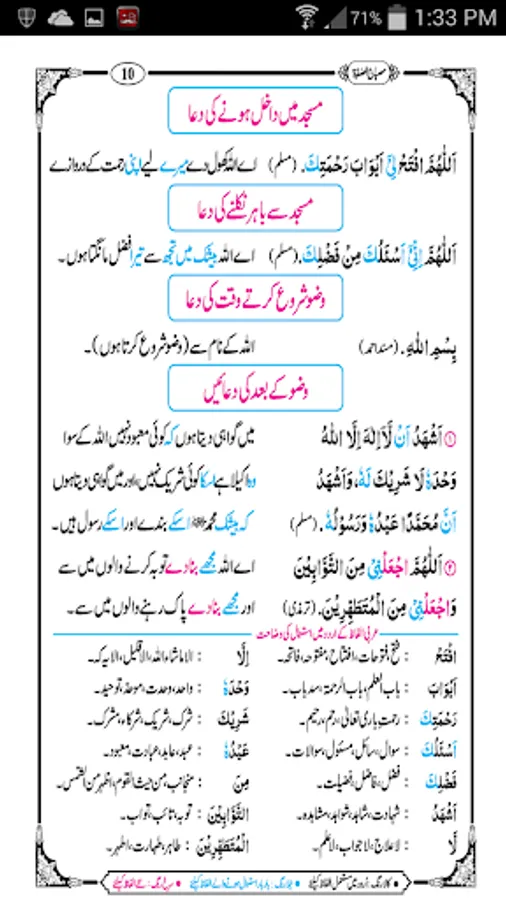 71% 1:33 PM
مصباح الصلوٰۃ 10
مسجد میں داخل ہونے کی دعا
اَللّٰهُمَّ افْتَحْ لِیْۤ اَبْوَابَ رَحْمَتِكَ. (مسلم) اے اللہ کھول دے میرے لیے اپنی رحمت کے دروازے
مسجد سے باہر نکلنے کی دعا
اَللّٰهُمَّ اِنِّیْۤ اَسْئَلُكَ مِنْ فَضْلِكَ. (مسلم) اے اللہ بیشک میں تجھ سے تیرا فضل مانگتا ہوں۔
وضو شروع کرتے وقت کی دعا
بِسْمِ اللّٰهِ. (مسند احمد) اللہ کے نام سے (وضو شروع کرتا ہوں)۔
وضو کے بعد کی دعائیں
① اَشْهَدُ اَنْ لَّاۤ اِلٰهَ اِلَّا اللّٰهُ میں گواہی دیتا ہوں کہ کوئی معبود نہیں اللہ کے سوا
وَحْدَهٗ لَا شَرِيْكَ لَهٗ، وَاَشْهَدُ وہ اکیلا ہے اسکا کوئی شریک نہیں، اور میں گواہی دیتا ہوں
اَنَّ مُحَمَّدًا عَبْدُهٗ وَرَسُوْلُهٗ. (مسلم) کہ بیشک محمد ﷺ اسکے بندے اور اسکے رسول ہیں۔
② اَللّٰهُمَّ اجْعَلْنِیْ مِنَ التَّوَّابِيْنَ اے اللہ مجھے بنا دے توبہ کرنے والوں میں سے
وَاجْعَلْنِیْ مِنَ الْمُتَطَهِّرِيْنَ. (ترمذی) اور مجھے بنا دے پاک رہنے والوں میں سے۔
عربی الفاظ کے اردو میں استعمال کی وضاحت
افْتَحْ : فتح، فتوحات، افتتاح، مفتوحہ، فاتح۔ اِلَّا : الا ماشاء اللہ، الا قلیل، الا یہ کہ۔
اَبْوَابَ : باب العلم، باب الرحمۃ، سد باب۔ وَحْدَهٗ : واحد، وحدت، موحد، توحید۔
رَحْمَتِكَ : رحمت باری تعالیٰ، رحم، رحیم۔ شَرِيْكَ : شرک، شریک، شرکاء، مشرک۔
اَسْئَلُكَ : سوال، سائل، مسئول، سوالات۔ عَبْدُهٗ : عبد، عابد، عبادت، معبود۔
فَضْلِكَ : فضل، فاضل، فضیلت۔ مِنَ : منجانب، من حیث القوم، اظہر من الشمس۔
اَشْهَدُ : شہادت، شاہد، شواہد، مشاہدہ۔ التَّوَّابِيْنَ : توبہ، تائب، تواب۔
لَا : لا علاج، لا جواب، لا علم۔ الْمُتَطَهِّرِيْنَ : طاہر، طہارت، اطہر۔
• کالا رنگ : اردو میں مستعمل الفاظ کیلئے • نیلا رنگ : بار بار استعمال ہونے والے الفاظ کیلئے • سرخ رنگ : نئے الفاظ کیلئے